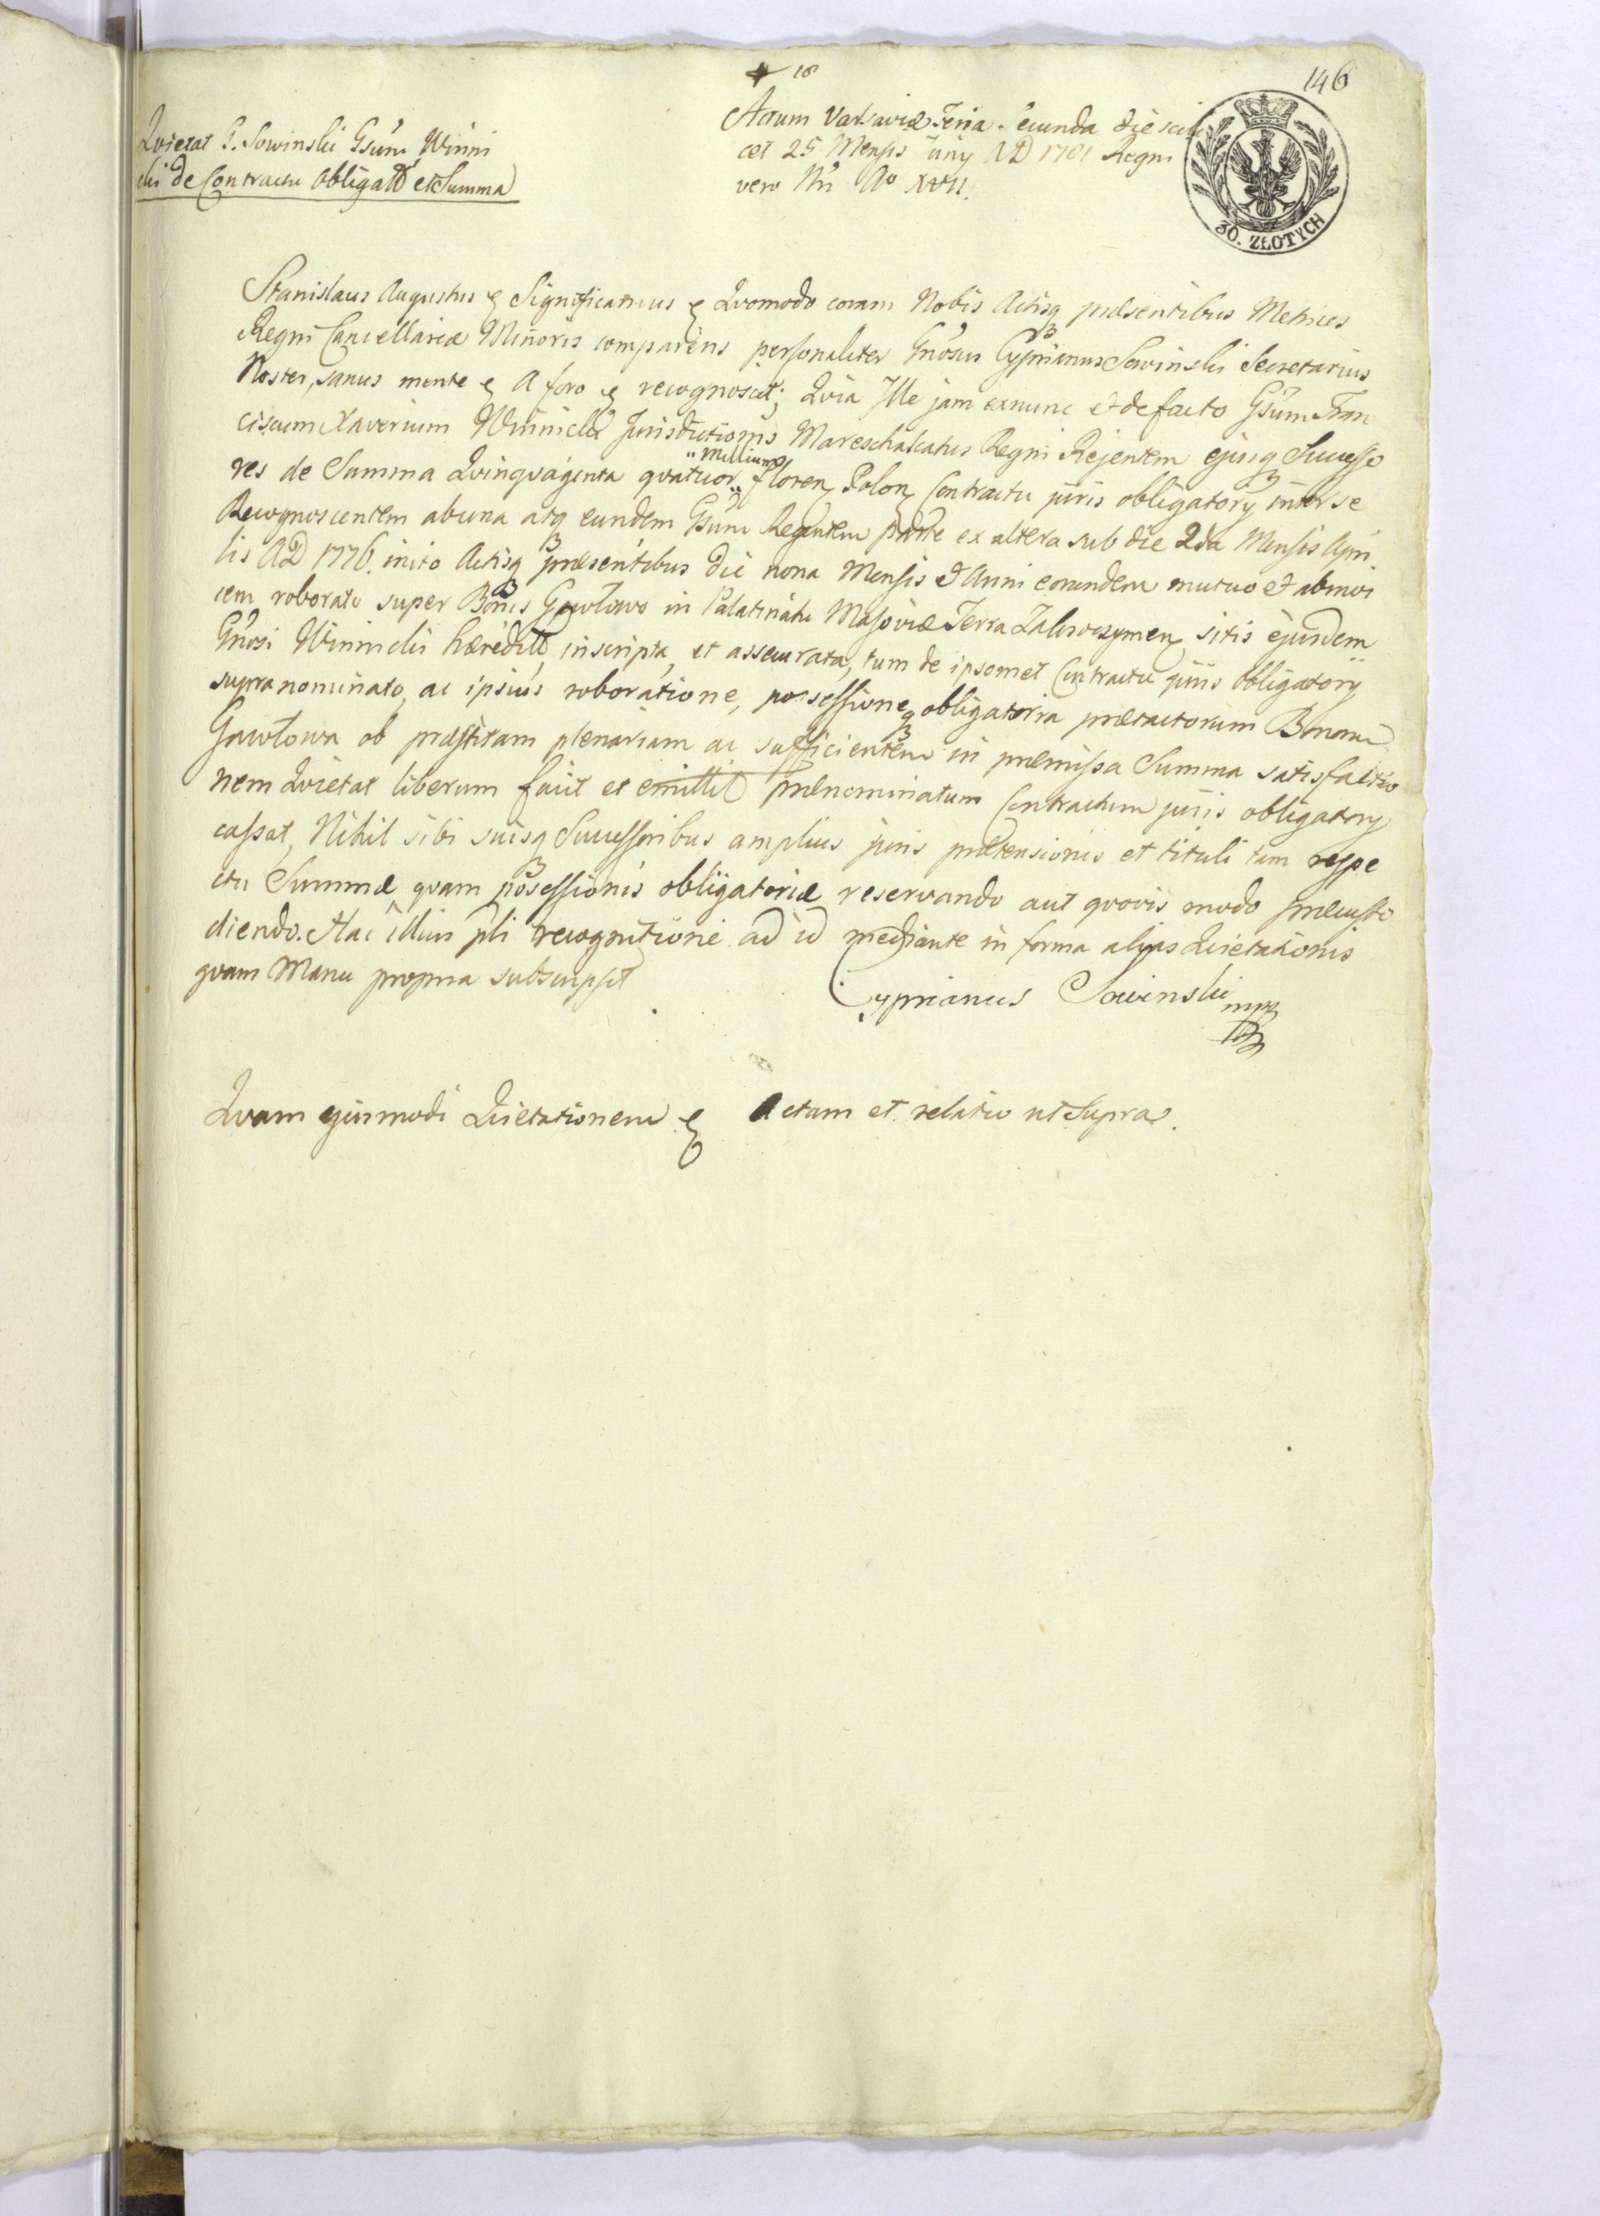 18
146
Actum Varsaviæ Feria secunda die scili
cet 25 Mensis Juny AD 1781 Regni
vero Nri Ao XVII.
30. ZŁOTYCH
Qvietat G. Sowinski Gsum Winni
cki de Contractu Obligatt et Summa
Stanislaus Augustus & Significamus & Qvomodo coram Nobis Actisq præsentibus Metrices
Regni Cancellariæ Minoris comparens personaliter Gnosus Cyprianus Sowinski Secretarius
Noster, sanus mente & A foro & recognoscit; Qvia Ille jam exnunc et de facto Gsum Fran
ciscum Xaverium Winnicki Jurisdictionis Mareschalcatus Regni Rejentem ejusq Successo
res de Summa Qvinqvaginta qvatuor Millium Floren Polon Contractu juris obligatory inter se
Recognoscentem ab una atq eundem Gsum Regentem parte ex altera sub die 2da Mensis Apri
lis AD 1776. inito Actisq præsentibus die nona Mensis et Anni eorundem mutuo et abinvi
cem roborato super Bonis Gawłowo in Palatinatu Masoviæ Terra Zakroczymen sitis ejusdem
Gnosi Winnicki hæreditt, inscripta, et assecurata, tum de ipsomet Contractu juris obligatory
supranominato, ac ipsius roboratione, possessioneq obligatoria prætactorum Bonorum
Gawłowa ob præstitam plenariam ac sufficientem in præmissa Summa satisfactio
nem Qvietat liberum facit et emittit prænominatum Contractum juris obligatory
cassat, Nihil sibi suisq Successoribus amplius juris prætensionis et tituli tam respe
ctu Summæ qvam possessionis obligatoriæ reservando aut qvovis modo præcusto
diendo. Hac illius pli recognitione ad id mediante in forma alias Qvietationis
qvam Manu propria subscripsit
Cyprianus Sowinski mpp
Qvam ejusmodi Qvietationem & Actum et relatio ut Supra.